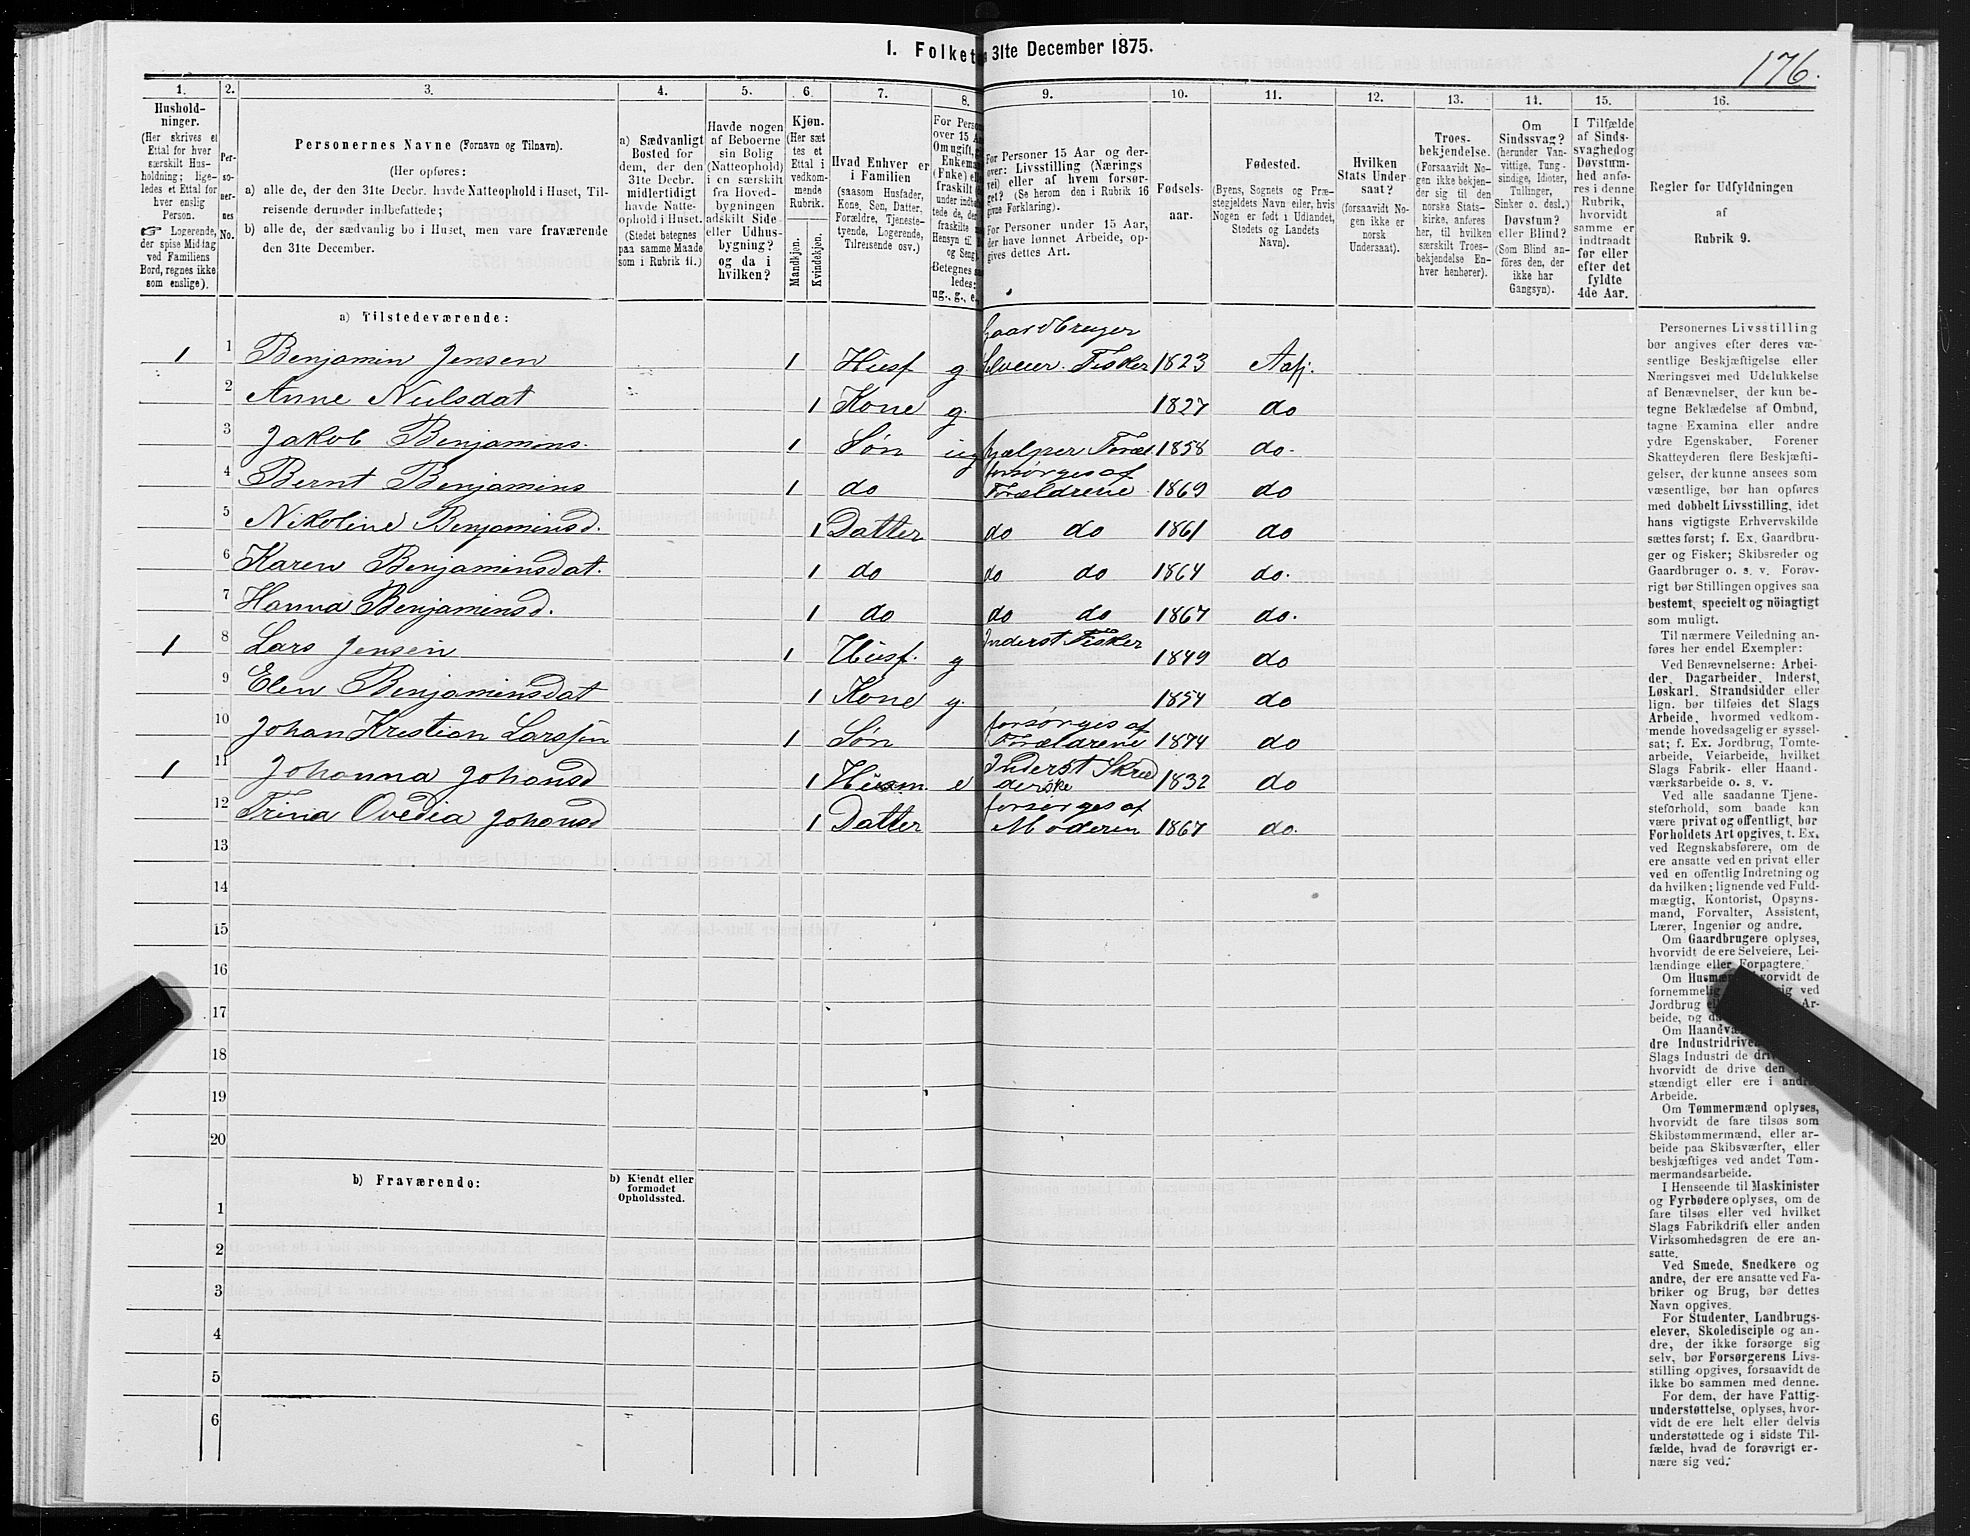 I. Folket 31te December 1875.
176.
1.
2.
3.
4.
5.
6.
7.
8.
9.
10.
11.
12.
13.
14.
15.
16.
Hushold-
ninger.
(Her skrives et
Ettal for hver
særskilt Hus-
holdning; lige-
ledes et Ettal for
hver enslig
Person.
☞ Logerende,
der spise Middag
ved Familiens
Bord, regnes ikke
som enslige).
Per-
so-
ner-
nes
No.
Personernes Navne (Fornavn og Tilnavn).
(Her opføres:
a) alle de, der den 31te Decbr. havde Natteophold i Huset, Til-
reisende derunder indbefattede;
b) alle de, der sædvanlig bo i Huset, men vare fraværende
den 31te December.
a) Sædvanligt
Bosted for
dem, der den
31te Decbr.
midlertidigt
havde Natte-
ophold i Huset.
(Stedet betegnes
paa samme Maade
som i Rubrik 11.)
Havde nogen
af Beboerne
sin Bolig
(Natteophold)
i en særskilt
fra Hoved-
bygningen
adskilt Side-
eller Udhus-
bygning?
og da i
hvilken?
Kjøn.
(Her sæt-
tes et
Ettal i
vedkom-
mende
Rubrik.
Mandkjøn.
Kvindekjøn.
Hvad Enhver er
i Familien
(saasom Husfader,
Kone, Søn, Datter,
Forældre, Tjeneste-
tyende, Logerende,
Tilreisende osv.)
For Person
over 15 A
Om ugift, g
Enkeman
(Enke) ell
fraskilt
under indbe
tede de, d
fraskilte
Hensyn til
og Seng
Betegnes s
ledes:
ug., g., e.
For Personer 15 Aar og der-
over: Livsstilling (Nærings-
vei) eller af hvem forsør-
get? (Se herom den i Rubrik 16
givne Forklaring).
For Personer under 15 Aar,
der have lønnet Arbeide, op-
gives dettes Art.
Fødsels-
aar.
Fødested.
(Byens, Sognets og Præ-
stegjeldets Navn eller, hvis
Nogen er født i Udlandet,
Stedets og Landets
Navn).
Hvilken
Stats Under-
saat?
(forsaavidt No-
gen ikke er
norsk
Undersaat).
Troes-
bekjendelse.
(Forsaavidt No-
gen ikke bekjen-
der sig til den
norske Stats-
kirke, anføres
her, til hvilken
særskilt Troes-
bekjendelse En-
hver henhører).
Om
Sindssvag?
(herunder Van-
vittige, Tung-
sindige, Idioter,
Tullinger,
Sinker o. desl.)
Døvstum?
eller Blind?
(Som Blind an-
føres den, der
ikke har
Gangsyn).
I Tilfælde
af Sinds-
svaghed og
Døvstum-
hed anfø-
res i denne
Rubrik,
hvorvidt
samme er
indtraadt
før eller
efter det
fyldte
4de Aar.
Regler for Udfyldningen
af
Rubrik 9.
a) Tilstedeværende:
1 1 Benjamin Jensen 1 Husf g. Gaardbruger Selveier Fisker 1823 Aafj.
2 Anne Nielsdat 1 Kone g. 1827 do
3 Jakob Benjamins. 1 Søn ug hjælper Foræl 1858 do.
4 Bernt Benjamins 1 do forsørges af Forældrene 1869 do
5 Nikoline Benjaminsd. 1 Datter do do 1861 do
6 Karen Benjaminsdat. 1 do do do 1864 do.
7 Hanna Benjaminsd. 1 do do do 1867 do.
1 8 Lars Jensen 1 Husf. g Inderst Fisker 1849 do
9 Elen Benjaminsdat 1 Kone g. 1854 do
10 Johan Kristian Larssen 1 Søn forsørges af Forældrene 1874 do
1 11 Johanna Johansd 1 Husm. e Inderst Skræd derske 1832 do
12 Trina Ovedia Johansd 1 Datter forsørges af Moderen 1867 do.
13
14
15
16
17
18
19
20
b) Fraværende:
b) Kjendt eller
formodet
Opholdssted.
1
2
3
4
5
6
Personernes Livsstilling
bør angives efter deres væ-
sentlige Beskjæftigelse eller
Næringsvei med Udelukkelse
af Benævnelser, der kun be-
tegne Beklædelse af Ombud,
tagne Examina eller andre
ydre Egenskaber. Forener
Skatteyderen flere Beskjæfti-
gelser, der kunne ansees som
væsentlige, bør han opføres
med dobbelt Livsstilling, idet
hans vigtigste Erhvervskilde
sættes først; f. Ex. Gaardbru-
ger og Fisker; Skibsreder og
Gaardbruger o. s. v. Forøv-
rigt bør Stillingen opgives saa
bestemt, specielt og nøiagtigt
som muligt.
Til nærmere Veiledning an-
føres her endel Exempler:
Ved Benævnelserne: Arbei-
der, Dagarbeider, Inderst,
Løskarl, Strandsidder eller
lign. bør tilføies det Slags
Arbeide, hvormed vedkom-
mende hovedsagelig er syssel-
sat; f. Ex. Jordbrug, Tomte-
arbeide, Veiarbeide, hvilket
Slags Fabrik- eller Haand-
værksarbeide o. s. v.
Ved alle saadanne Tjene-
steforhold, som baade kan
være privat og offentligt, bør
Forholdets Art opgives, t. Ex.
ved Regnskabsførere, om de
ere ansatte ved en privat eller
ved en offentlig Indretning og
da hvilken; lignende ved Fuld-
mægtig, Kontorist, Opsyns-
mand, Forvalter, Assistent,
Lærer, Ingeniør og andre.
Om Gaardbrugere oplyses,
hvorvidt de ere Selveiere, Lei-
lændinge eller Forpagtere.
Om Husmæ hvorvidt de
fornemmelig sig ved
Jordbrug el Ar-
beide, og da
Om Haandvæ
dre Industridriven
Slags Industri de driv
hvorvidt de drive den
stændigt eller ere i andre
Arbeide.
Om Tømmermænd oplyses,
hvorvidt de fare tilsøs som
Skibstømmermænd, eller ar-
beide paa Skibsværfter, eller
beskjæftiges ved andet Tøm-
mermandsarbeide.
I Henseende til Maskinister
og Fyrbødere oplyses, om de
fare tilsøs eller ved hvilket
Slags Fabrikdrift eller anden
Virksomhedsgren de ere an-
satte.
Ved Smede, Snedkere og
andre, der ere ansatte ved Fa-
briker og Brug, bør dettes
Navn opgives.
For Studenter, Landbrugs-
elever, Skoledisciple og an-
dre, der ikke forsørge sig
selv, bør Forsørgerens Livs-
stilling opgives, forsaavidt de
ikke bo sammen med denne.
For dem, der have Fattig-
understøttelse, oplyses, hvor-
vidt de ere helt eller delvis
understøttede og i sidste Til-
fælde, hvad de forøvrigt er-
nære sig ved.